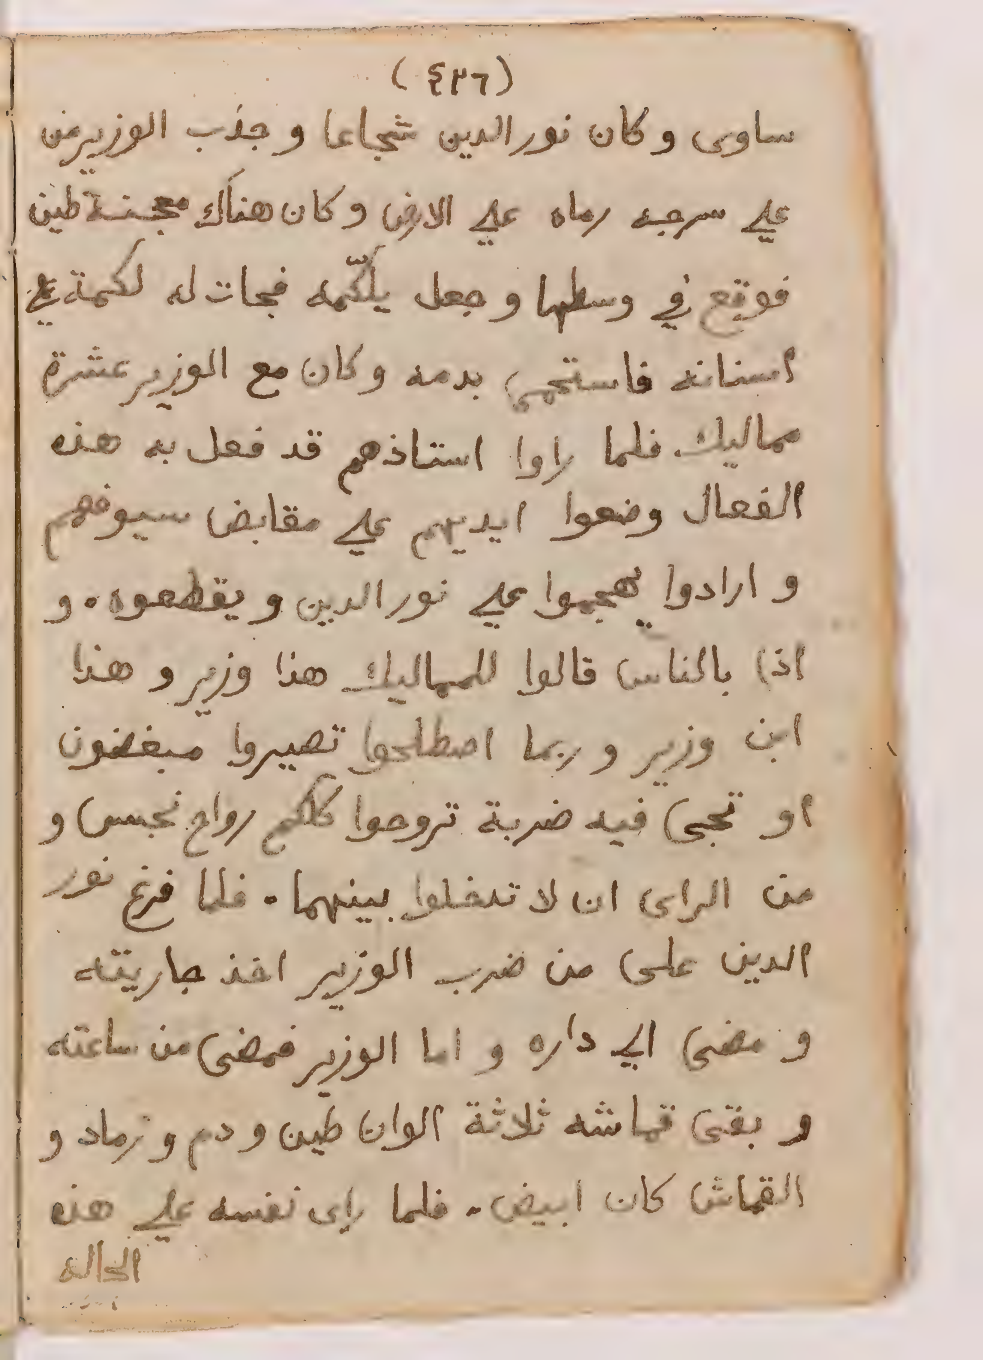 (٤٣٦)
ساوى وكان نور الدين شجاعا وجذب الوزير من
علي سرجه رماه علي الارض وكان هناك معجنة طين
فوقع في وسطها وجعل يلكّمه فجات له لكمة علي
اسنانه فاستحمي بدمه وكان مع الوزير عشرة
مماليك فلما راوا استاذهم قد فعل به هذه
الفعال وضعوا ايديهم علي مقابض سيوفهم
و ارادوا يهجموا علي نور الدين ويقطعوه. و
اذا بالناس قالوا للمماليك هذا وزير و هذا
ابن وزير و ربما اصطلحوا تصيروا مبغضون
او تجى فيه ضربة تروحوا كلكم رواح نجس و
من الراى ان لا تدخلوا بينهما. فلما فرغ نور
الدين على من ضرب الوزير اخذ جاريته
و مضى الي داره و اما الوزير فمضى من ساعته
و بقى قماشه ثلاثة الوان طين و دم و رماد و
القماش كان ابيض. فلما راى نفسه علي هذه
الحاله